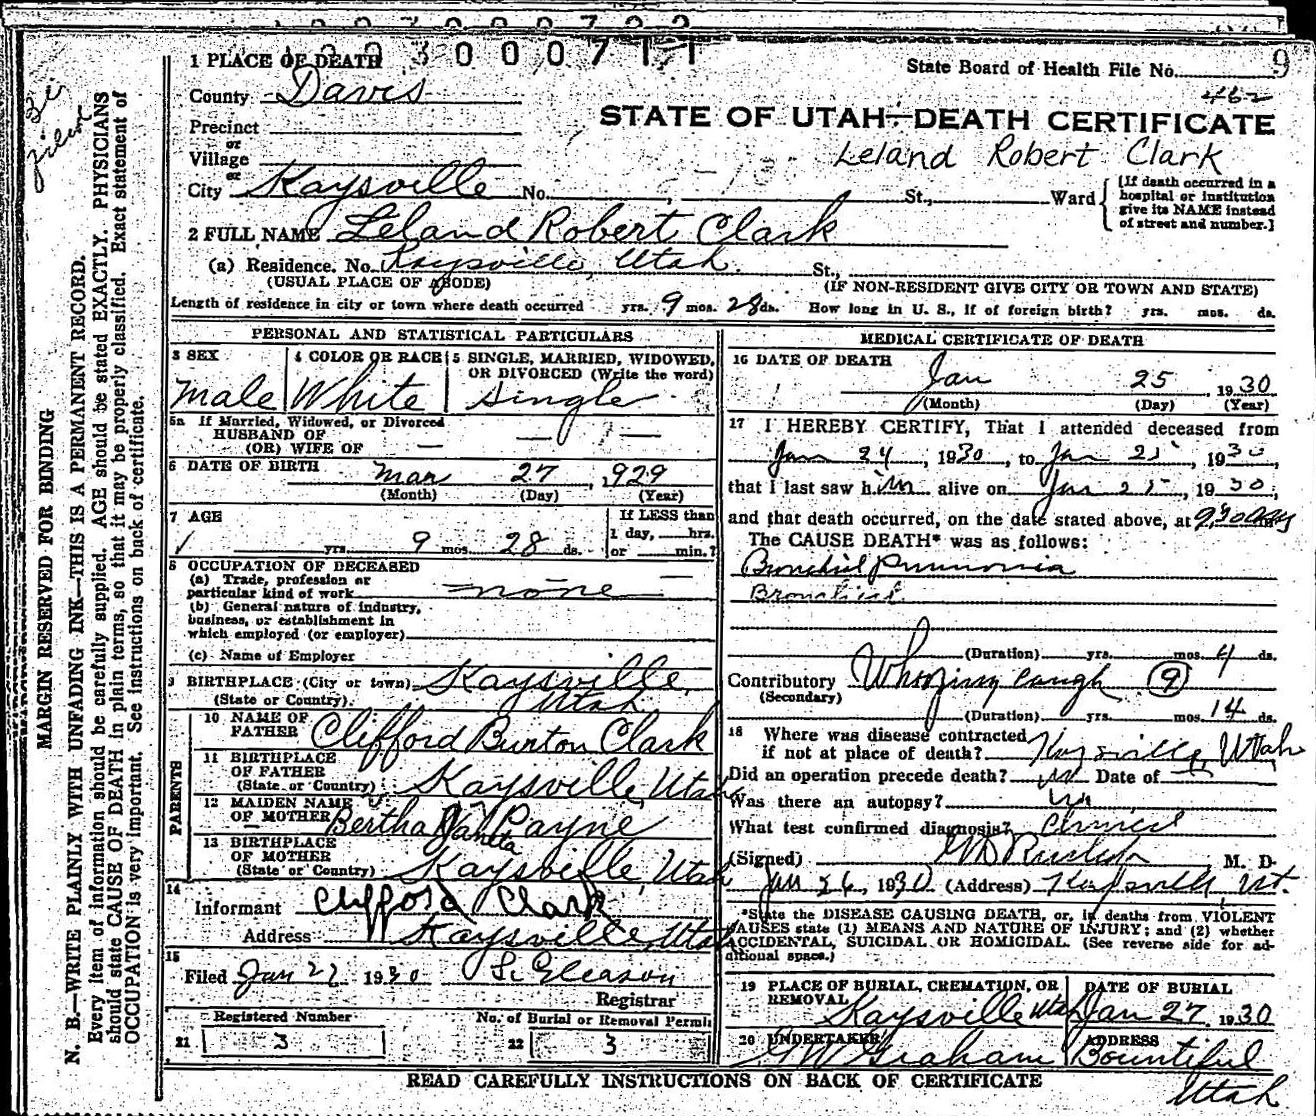 1 PLACE OF DEATH 3000711
State Board of Health File No. 9
County Davis
462
STATE OF UTAH—DEATH CERTIFICATE
Precinct
or
Leland Robert Clark
Village
or
City Kaysville No. St., Ward
[If death occurred in a
hospital or institution
give its NAME instead
of street and number.]
2 FULL NAME Leland Robert Clark
(a) Residence. No. Kaysville, Utah. St.,
(USUAL PLACE OF ABODE) (IF NON-RESIDENT GIVE CITY OR TOWN AND STATE)
Length of residence in city or town where death occurred yrs. 9 mos. 28 ds. How long in U. S., if of foreign birth? yrs. mos. ds.
PERSONAL AND STATISTICAL PARTICULARS
3 SEX 4 COLOR OR RACE 5 SINGLE, MARRIED, WIDOWED,
OR DIVORCED (Write the word)
Male White Single
5a If Married, Widowed, or Divorced
HUSBAND OF
(OR) WIFE OF — — —
6 DATE OF BIRTH Mar 27, 1929
(Month) (Day) (Year)
7 AGE If LESS than
1 day, hrs.
yrs. 9 mos. 28 ds. or min.?
8 OCCUPATION OF DECEASED
(a) Trade, profession or
particular kind of work none
(b) General nature of industry,
business, or establishment in
which employed (or employer)
(c) Name of Employer
9 BIRTHPLACE (City or town) Kaysville
(State or Country). Utah
PARENTS
10 NAME OF
FATHER Clifford Burton Clark
11 BIRTHPLACE
OF FATHER
(State or Country) Kaysville, Utah
12 MAIDEN NAME
OF MOTHER Bertha Payne
13 BIRTHPLACE
OF MOTHER
(State or Country) Kaysville, Utah
14
Informant Clifford Clark
Address Kaysville, Utah
15
Filed Jan 27 1930 S. Gleason
Registrar
Registered Number No. of Burial or Removal Permit
21 3 22 3
MEDICAL CERTIFICATE OF DEATH
16 DATE OF DEATH
Jan 25, 1930
(Month) (Day) (Year)
17 I HEREBY CERTIFY, That I attended deceased from
Jan 24, 1930, to Jan 25, 1930,
that I last saw him alive on Jan 25, 1930,
and that death occurred, on the date stated above, at
The CAUSE DEATH* was as follows:
Bronchial Pneumonia
Bronchial
(Duration) yrs. mos. 4 ds.
Contributory Whooping Cough 9
(Secondary)
(Duration) yrs. mos. 14 ds.
18 Where was disease contracted
if not at place of death? Kaysville, Utah
Did an operation precede death? no Date of —
Was there an autopsy? no
What test confirmed diagnosis? Clinical
(Signed) M. D.
Jan 26, 1930 (Address) Kaysville Ut.
*State the DISEASE CAUSING DEATH, or, in deaths from VIOLENT
CAUSES state (1) MEANS AND NATURE OF INJURY; and (2) whether
ACCIDENTAL, SUICIDAL OR HOMICIDAL. (See reverse side for ad-
ditional space.)
19 PLACE OF BURIAL, CREMATION, OR
REMOVAL Kaysville Utah
DATE OF BURIAL
Jan 27, 1930
20 UNDERTAKER
G W Graham
ADDRESS
Bountiful
Utah
READ CAREFULLY INSTRUCTIONS ON BACK OF CERTIFICATE
MARGIN RESERVED FOR BINDING
N. B.—WRITE PLAINLY WITH UNFADING INK—THIS IS A PERMANENT RECORD.
Every item of information should be carefully supplied. AGE should be stated EXACTLY. PHYSICIANS
should state CAUSE OF DEATH in plain terms, so that it may be properly classified. Exact statement of
OCCUPATION is very important. See instructions on back of certificate.